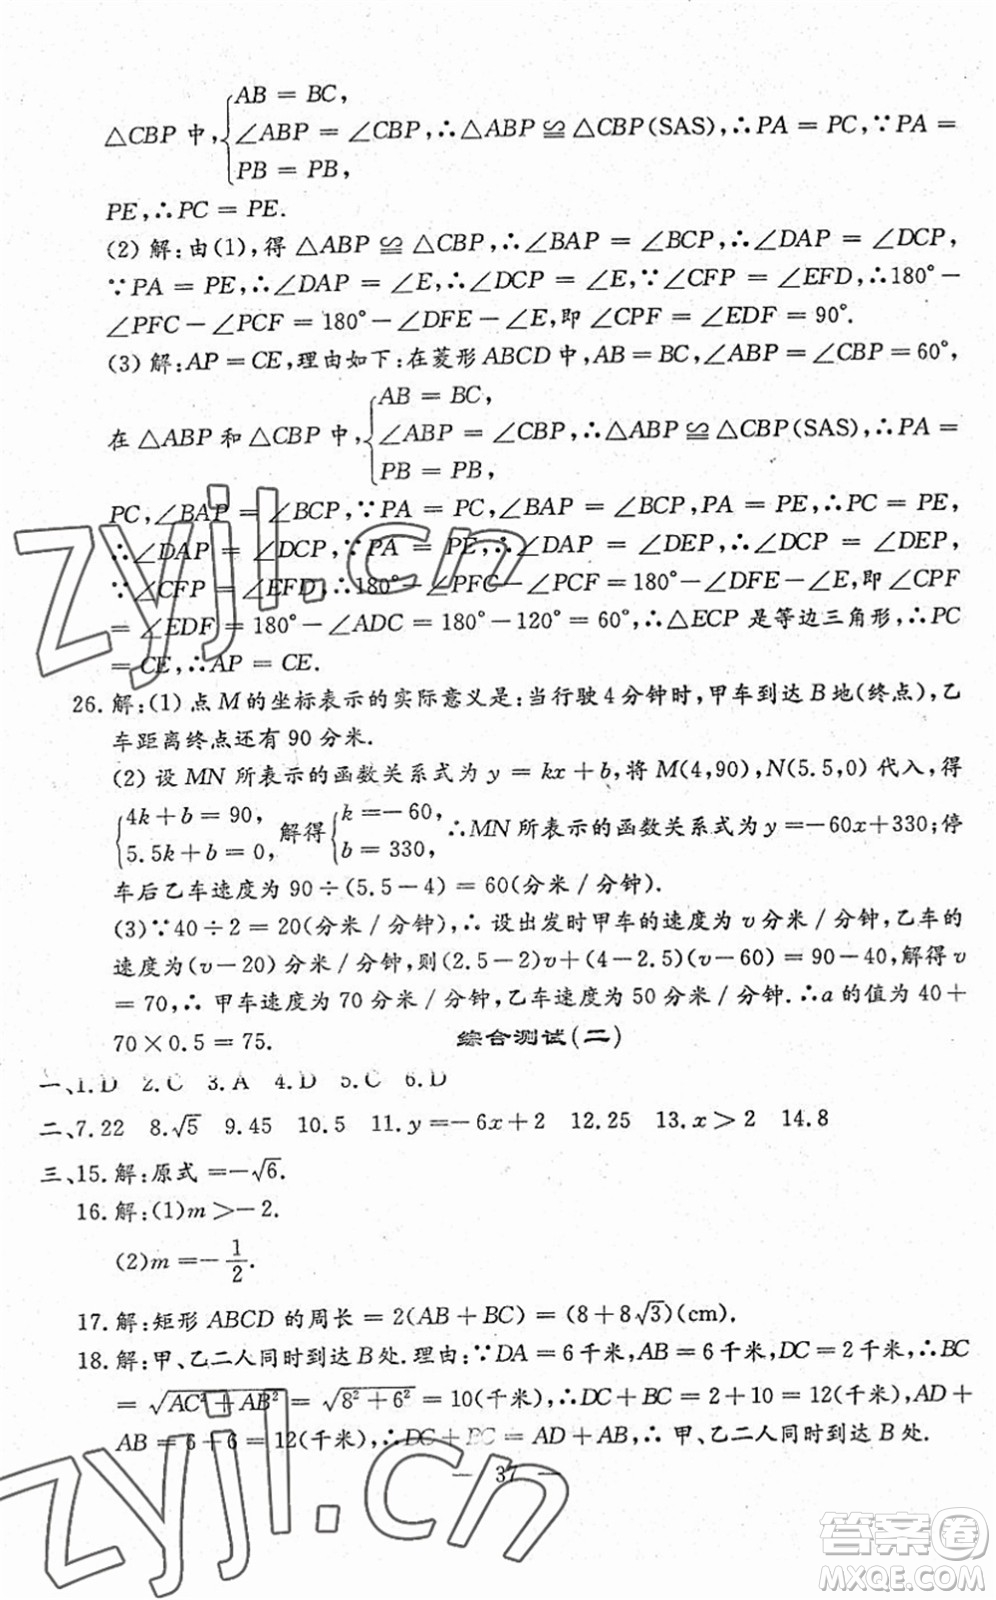 △CBP 中,{AB = BC,
∠ABP = ∠CBP,∴△ABP ≌ △CBP(SAS),∴PA = PC,∵PA =
PB = PB,
PE,∴PC = PE.
(2) 解:由(1),得 △ABP ≌ △CBP,∴∠BAP = ∠BCP,∴∠DAP = ∠DCP,
∵PA = PE,∴∠DAP = ∠E,∴∠DCP = ∠E,∵∠CFP = ∠EFD,∴180°−
∠PFC−∠PCF = 180°−∠DFE−∠E,即 ∠CPF = ∠EDF = 90°.
(3) 解:AP = CE,理由如下:在菱形 ABCD 中,AB = BC,∠ABP = ∠CBP = 60°,
在 △ABP 和 △CBP 中,{AB = BC,
∠ABP = ∠CBP,∴△ABP ≌ △CBP(SAS),∴PA =
PB = PB,
PC,∠BAP = ∠BCP,∵PA = PC,∠BAP = ∠BCP,PA = PE,∴PC = PE,
∴∠DAP = ∠DCP,∵PA = PE,∴∠DAP = ∠DEP,∴∠DCP = ∠DEP,
∵∠CFP = ∠EFD,∴180°−∠PFC−∠PCF = 180°−∠DFE−∠E,即 ∠CPF
= ∠EDF = 180°−∠ADC = 180°−120° = 60°,∴△ECP 是等边三角形,∴PC
= CE,∴AP = CE.
26. 解:(1) 点 M 的坐标表示的实际意义是:当行驶 4 分钟时,甲车到达 B 地(终点),乙
车距离终点还有 90 分米.
(2) 设 MN 所表示的函数关系式为 y = kx + b,将 M(4,90),N(5.5,0) 代入,得
{4k + b = 90, 解得 {k = −60, ∴MN 所表示的函数关系式为 y=−60x+330;停
5.5k + b = 0, b = 330,
车后乙车速度为 90 ÷ (5.5−4) = 60(分米 / 分钟).
(3)∵40 ÷ 2 = 20(分米 / 分钟),∴ 设出发时甲车的速度为 v 分米 / 分钟,乙车的
速度为(v−20) 分米 / 分钟,则(2.5−2)v+(4−2.5)(v−60) = 90−40,解得 v
= 70,∴ 甲车速度为 70 分米 / 分钟,乙车速度为 50 分米 / 分钟.∴a 的值为 40 +
70 × 0.5 = 75.
综合测试(二)
一、1.D 2.C 3.A 4.D 5.C 6.D
二、7.22 8.√5 9.45 10.5 11.y =−6x + 2 12.25 13.x > 2 14.8
三、15.解:原式 =−√6.
16.解:(1)m >−2.
(2)m =−1/2.
17.解:矩形 ABCD 的周长 = 2(AB + BC) = (8 + 8√3)(cm).
18.解:甲、乙二人同时到达 B 处.理由:∵DA = 6 千米,AB = 6 千米,DC = 2 千米,∴BC
= √AC² + AB² = √8² + 6² = 10(千米),∴DC + BC = 2 + 10 = 12(千米),AD +
AB = 6 + 6 = 12(千米),∴DC + BC = AD + AB,∴ 甲、乙二人同时到达 B 处.
— 37 —
zyjl.cn
zyjl.cn
答案圈
MXQE.COM